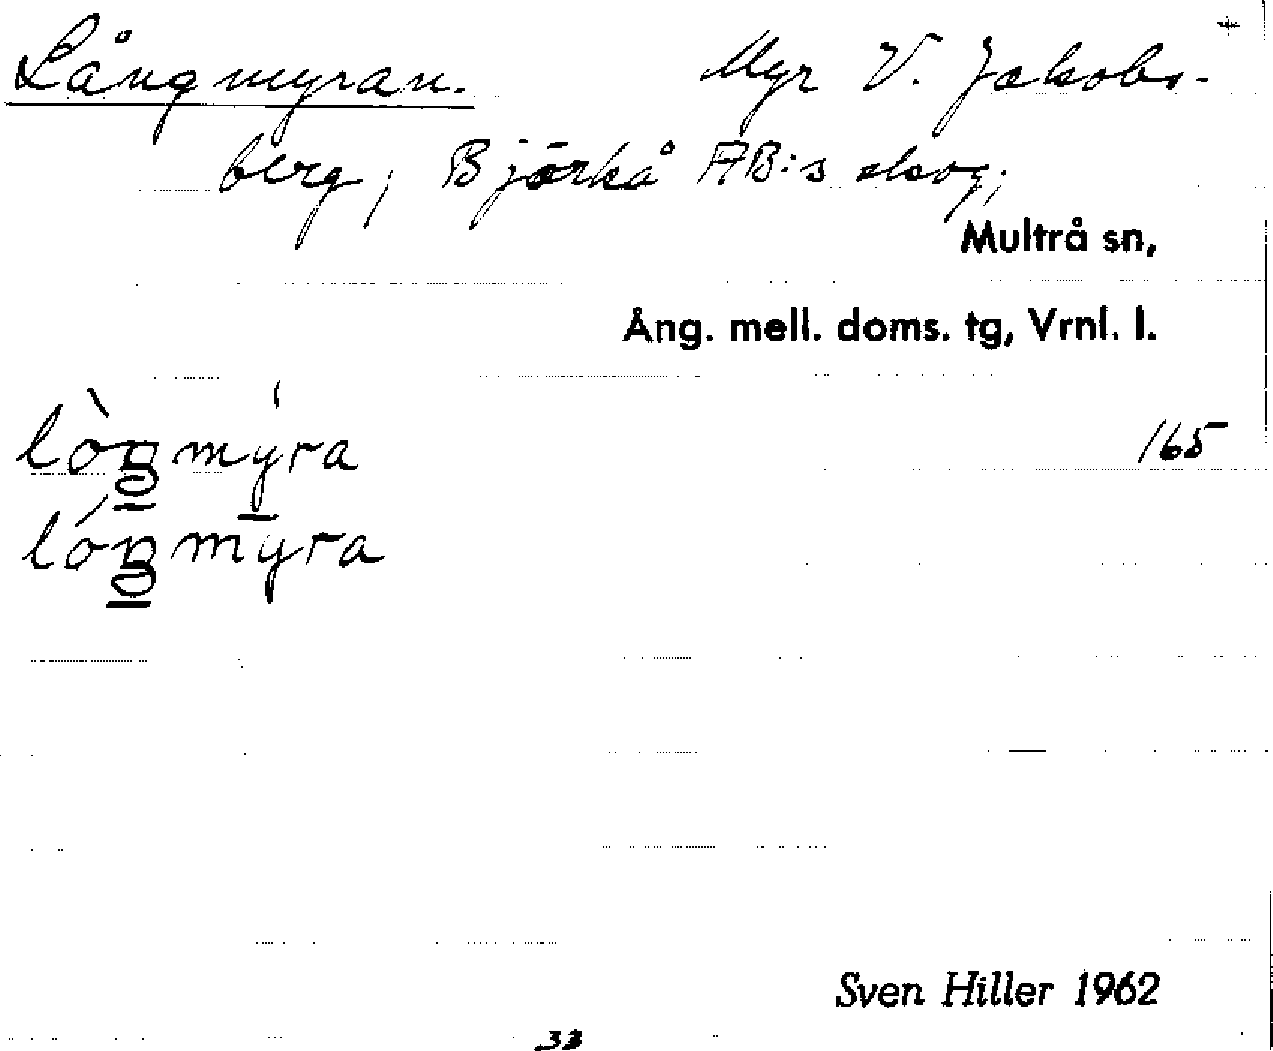 Långmyran. Myr V. Jakobs-
berg; Björkå AB:s skog;
Multrå sn,
Ång. mell. doms. tg, Vrnl. l.
165
Sven Hiller 1962
33